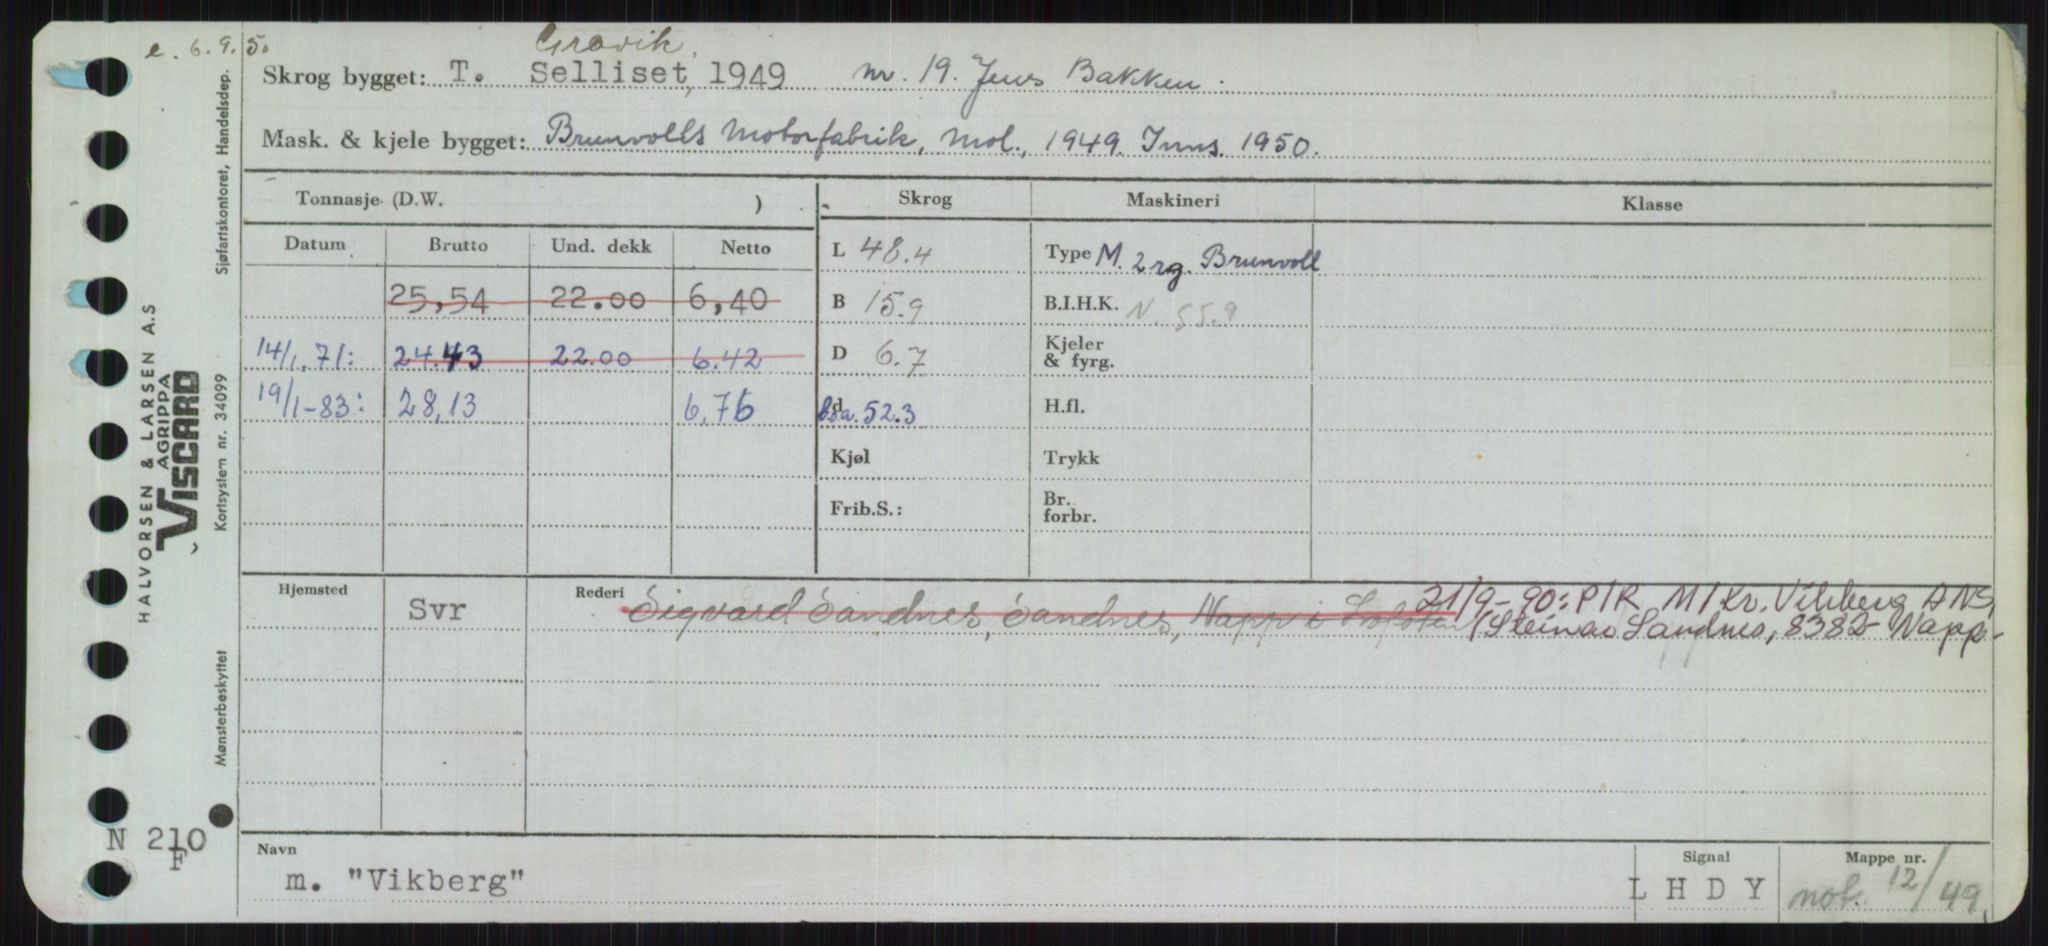 e. 6.9.50
Gravik.
Skrog bygget: T. Selliset, 1949 nr. 19. Jens Bakken.
Mask. & kjele bygget: Brunvolls Motorfabrik, Mol., 1949. Inns. 1950.
Tonnasje (D.W. ) Skrog Maskineri Klasse
Datum Brutto Und. dekk Netto L 48.4 Type M. 2 rg. Brunvoll
25,54 22.00 6,40 B 15.9 B.I.H.K. N. 55.9
14/1.71: 24.43 22.00 6.42 D 6.7 Kjeler & fyrg.
19/1-83: 28,13 6,76 d l.o.a. 52.3 H.fl.
Kjøl Trykk
Frib.S.: Br. forbr.
Hjemsted Svr Rederi Sigvard Sandnes, Sandnes, Napp i Lofoten 21/9-90: P/R M/Kr. Vikberg ANS,
(Steinar Sandnes, 8382 Napp.
Navn Signal Mappe nr.
m. "Vikberg" LHDY not. 12/49.
N 210
F
HALVORSEN & LARSEN A.S
AGRIPPA
VISCARD
Sjøfartskontoret, Handelsdep.
Kortsystem nr. 34099
Mønsterbeskyttet